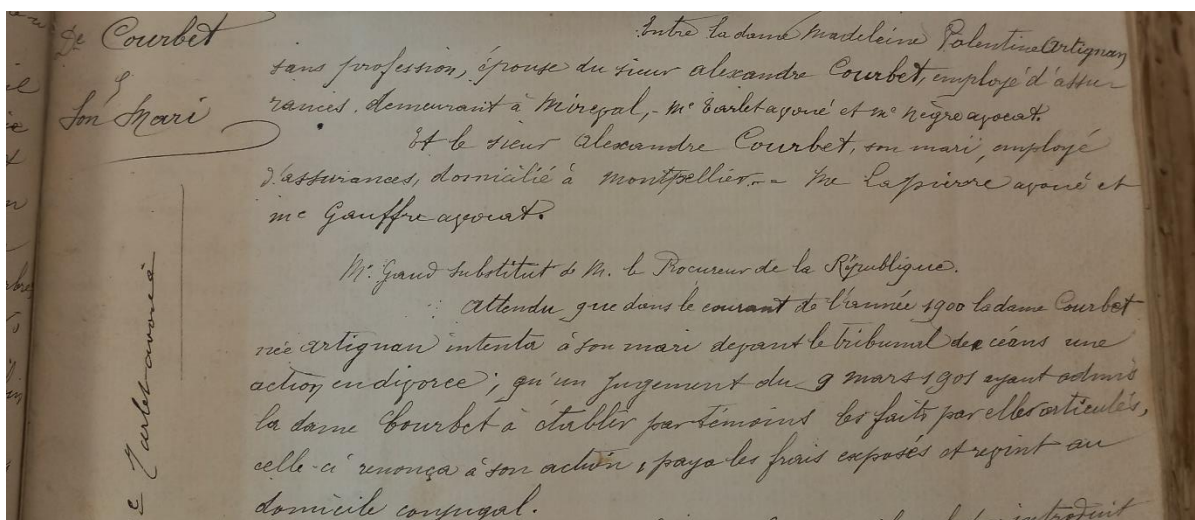 De Courbet
&
Son Mari
Entre la dame Madeleine Polentine Artignan
sans profession, épouse du sieur alexandre Courbet, employé d'assu-
rances, demeurant à Mireval, - Me Tarlet avoué et me nègre avocat.
Et le sieur Alexandre Courbet, son mari, employé
d'assurances, domicilié à montpellier. - Me Lapierre avoué et
me Gauffre avocat.
Mr. Gaud substitut de M. le Procureur de la République.
attendu que dans le courant de l'année 1900 la dame Courbet
née artignan intenta à son mari devant le tribunal de céans une
action en divorce; qu'un jugement du 9 mars 1901 ayant admis
la dame Courbet à établir par témoins les faits par elle articulés,
celle-ci renonça à son action, paya les frais exposés et revint au
domicile conjugal.
introduit